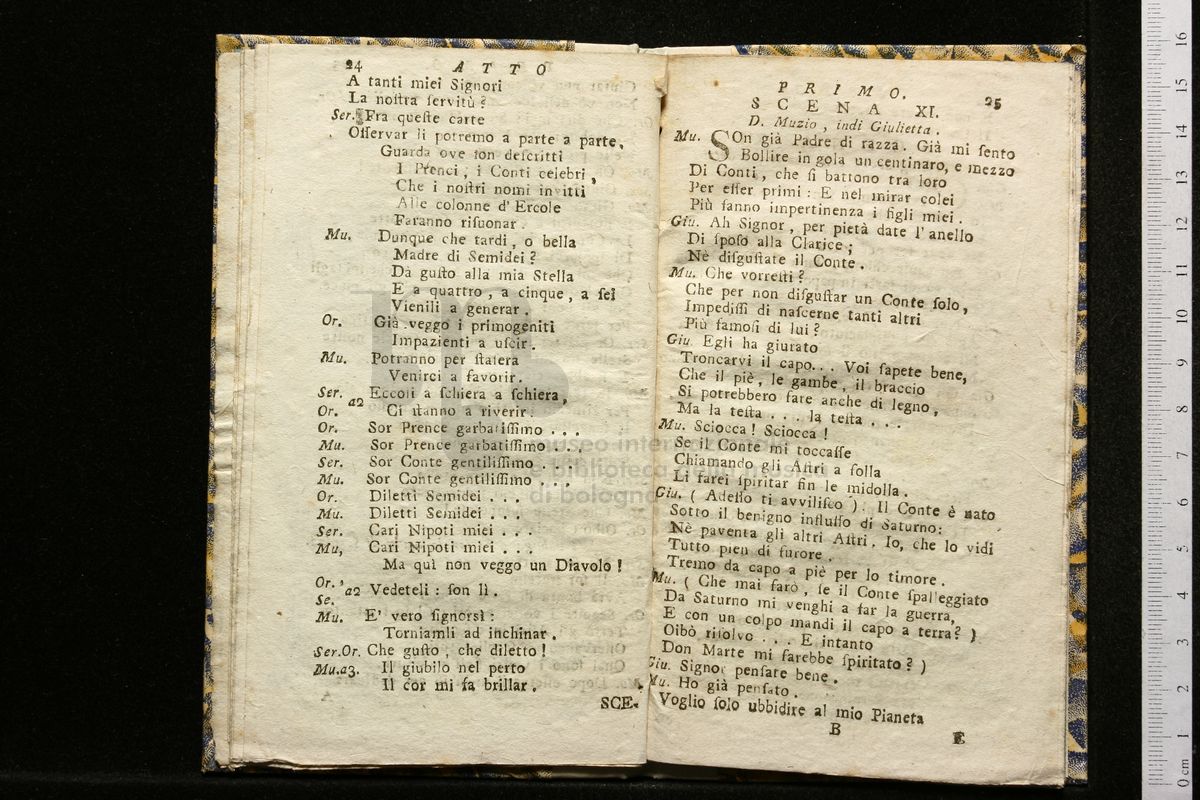 24 ATTO
A tanti miei Signori
La noſtra ſervitù?
Ser. Fra queſte carte
Oſſervar li potremo a parte a parte,
Guarda ove ſon deſcritti
I Prenci, i Conti celebri,
Che i noſtri nomi invitti
Alle colonne d'Ercole
Faranno riſuonar.
Mu. Dunque che tardi, o bella
Madre di Semidei?
Dà guſto alla mia Stella
E a quattro, a cinque, a ſei
Vienili a generar.
Or. Già veggo i primogeniti
Impazienti a uſcir.
Mu. Potranno per ſtaſera
Venirci a favorir.
Ser. Eccoli a ſchiera a ſchiera,
Or. a2 Ci ſtanno a riverir.
Or. Sor Prence garbatiſſimo . . .
Mu. Sor Prence garbatiſſimo . . .
Ser. Sor Conte gentiliſſimo . . .
Mu. Sor Conte gentiliſſimo . . .
Or. Diletti Semidei . . .
Mu. Diletti Semidei . . .
Ser. Cari Nipoti miei . . .
Mu, Cari Nipoti miei . . .
Ma quì non veggo un Diavolo!
Or. Se. a2 Vedeteli: ſon lì.
Mu. E' vero ſignorsì:
Torniamli ad inchinar.
Ser.Or. Che guſto, che diletto!
Mu.a3. Il giubilo nel petto
Il cor mi fa brillar.
SCE-
PRIMO. 25
SCENA XI.
D. Muzio, indi Giulietta.
Mu. SOn già Padre di razza. Già mi ſento
Bollire in gola un centinaro, e mezzo
Di Conti, che ſi battono tra loro
Per eſſer primi: E nel mirar colei
Più fanno impertinenza i figli miei.
Giu. Ah Signor, per pietà date l'anello
Di ſpoſo alla Clarice;
Nè diſguſtate il Conte.
Mu. Che vorreſti?
Che per non diſguſtar un Conte ſolo,
Impediſſi di naſcerne tanti altri
Più famoſi di lui?
Giu. Egli ha giurato
Troncarvi il capo... Voi ſapete bene,
Che il piè, le gambe, il braccio
Si potrebbero fare anche di legno,
Ma la teſta . . . la teſta . . .
Mu. Sciocca! Sciocca!
Se il Conte mi toccaſſe
Chiamando gli Aſtri a folla
Li farei ſpiritar fin le midolla.
Giu. (Adeſſo ti avviliſco). Il Conte è nato
Sotto il benigno influſſo di Saturno:
Nè paventa gli altri Aſtri. Io, che lo vidi
Tutto pien di furore.
Tremo da capo a piè per lo timore.
Mu. (Che mai farò, ſe il Conte ſpalleggiato
Da Saturno mi venghi a far la guerra,
E con un colpo mandi il capo a terra?)
Oibò riſolvo . . . E intanto
Don Marte mi ſarebbe ſpiritato?)
Giu. Signor penſate bene.
Mu. Ho già penſato.
Voglio ſolo ubbidire al mio Pianeta
B
E
museo internazionale
e biblioteca della musica
di bologna
0 cm 1 2 3 4 5 6 7 8 9 10 11 12 13 14 15 16